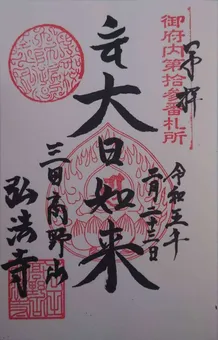 奉拝
御府内第拾参番札所
令和五年
二月二十三日
大日如来
三田高野山
弘法寺